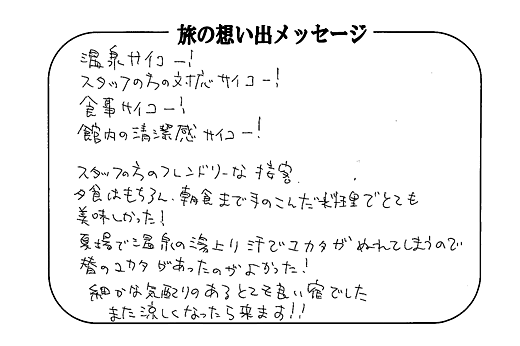 旅の想い出メッセージ
温泉サイコー!
スタッフの方の対応サイコー!
食事サイコー!
館内の清潔感サイコー!
スタッフの方のフレンドリーな接客
夕食はもちろん、朝食まで手のこんだ料理でとても
美味しかった!
夏場で温泉の湯上り汗でユカタがぬれてしまうので
替のユカタがあったのがよかった!
細かな気配りのあるとても良い宿でした
また涼しくなったら来ます!!